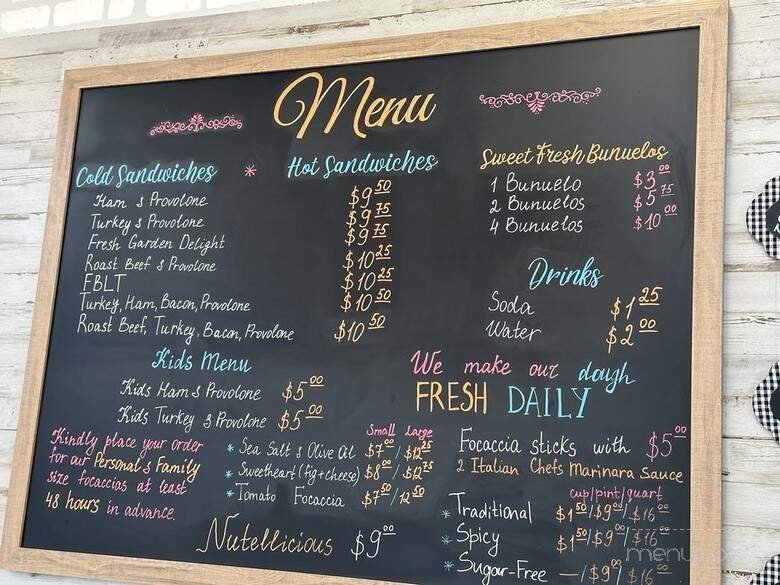 Menu
Cold Sandwiches * Hot Sandwiches
Ham & Provolone $9.50
Turkey & Provolone $9.75
Fresh Garden Delight $9.75
Roast Beef & Provolone $10.25
FBLT $10.25
Turkey, Ham, Bacon, Provolone $10.50
Roast Beef, Turkey, Bacon, Provolone $10.50
Kids Menu
Kids Ham & Provolone $5.00
Kids Turkey & Provolone $5.00
Kindly place your order
for our Personal & Family
size focaccias at least
48 hours in advance.
Small Large
* Sea Salt & Olive Oil $7.00 / $12.25
* Sweetheart (fig+cheese) $8.00 / $12.75
* Tomato Focaccia $7.50 / 12.50
Nutellicious $9.00
Sweet Fresh Bunuelos
1 Bunuelo $3.00
2 Bunuelos $5.75
4 Bunuelos $10.00
Drinks
Soda $1.25
Water $2.00
We make our dough
FRESH DAILY
Focaccia sticks with $5.00
2 Italian Chefs Marinara Sauce
cup/pint/quart
* Traditional $1.50/$9.00/$16.00
* Spicy $1.50/$9.00/$16.00
* Sugar-Free —/$9.00/$16.00